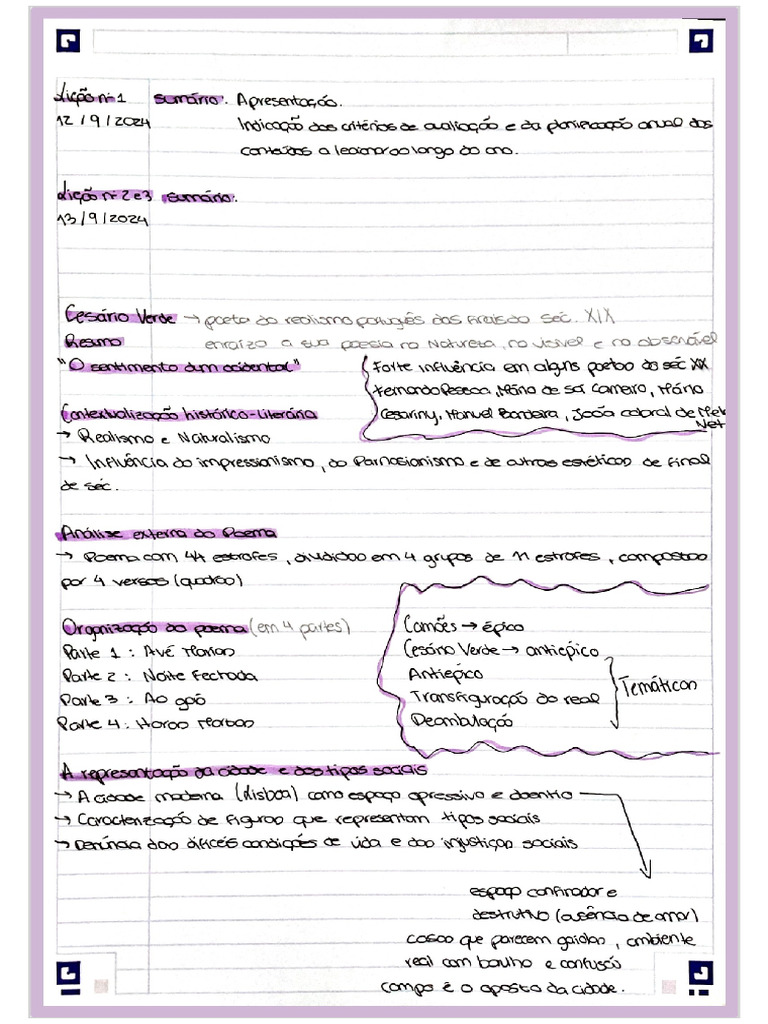 Lição nº 1 sumário: Apresentação.
12/9/2024 Indicação dos critérios de avaliação e da planificação anual dos
conteúdos a lecionar ao longo do ano.
Lição nº 2 e 3 sumário:
13/9/2024
Cesário Verde → poeta do realismo português dos finais do séc. XIX
Resumo enraíza a sua poesia na Natureza, no visível e no observável
"O sentimento dum ocidental"
Forte influência em alguns poetas do séc XX
Fernando Pessoa, Mário de Sá Carneiro, Mário
Cesariny, Manuel Bandeira, João Cabral de Mel
Net
Contextualização histórico-literária
→ Realismo e Naturalismo
→ Influência do impressionismo, do Parnasianismo e de outras estéticas de final
de séc.
Análise externa do Poema
→ Poema com 44 estrofes, dividido em 4 grupos de 11 estrofes, compostas
por 4 versos (quadra)
Organização do poema (em 4 partes)
Parte 1: Avé Marias
Parte 2: Noite Fechada
Parte 3: Ao gás
Parte 4: Horas Mortas
Camões → épico
Cesário Verde → antiépico
Antiépico
Transfiguração do real
Deambulação
Temáticas
A representação da cidade e dos tipos sociais
→ A cidade moderna (Lisboa) como espaço opressivo e doentio
→ Caracterização de figuras que representam tipos sociais
→ Denúncia das difíceis condições de vida e das injustiças sociais
espaço confinador e
destrutivo (ausência de amor)
casas que parecem gaiolas, ambiente
real com barulho e confusão
campo é o oposto da cidade.